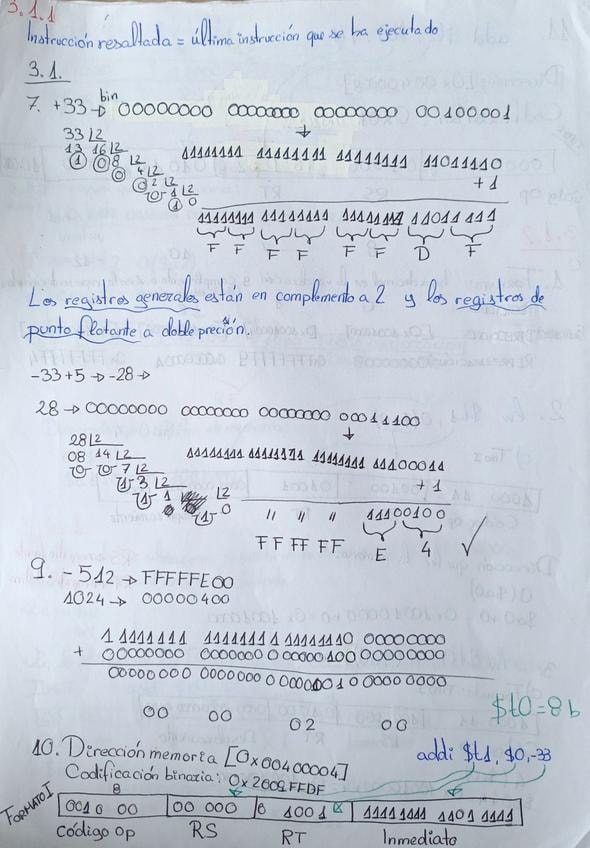 3.1.1
Instrucción resaltada = última instrucción que se ha ejecutado
3.1.
7. +33 → bin 00000000 00000000 00000000 00100001
33 L2
13 16 L2
1 0 8 L2
0 4 L2
0 2 L2
0 1 L2
1 0
↓
11111111 11111111 11111111 11011110
+ 1
11111111 11111111 11111111 11011111
F F F F F F D F
Los registros generales están en complemento a 2 y los registros de
punto flotante a doble precisión.
-33+5 → -28 →
28 → 00000000 00000000 00000000 00011100
↓
28 L2
08 14 L2
0 0 7 L2
1 3 L2
1 1 L2
1 0
11111111 11111111 11111111 11100011
+ 1
" " " 11100100
FF FF FF E 4 ✓
9. -512 → FFFFFE00
1024 → 00000400
1 1111111 11111111 11111110 00000000
+ 00000000 00000000 00000100 00000000
00000000 00000000 00000010 00000000
00 00 02 00
$t0=8
10. Dirección memoria [0x00400004]
addi $t1, $0, -33
Codificación binaria: 0x2009FFDF
8
FORMATO I
0010 00 00 000 0 1001 11111111 1101 1111
Código Op RS RT Inmediato